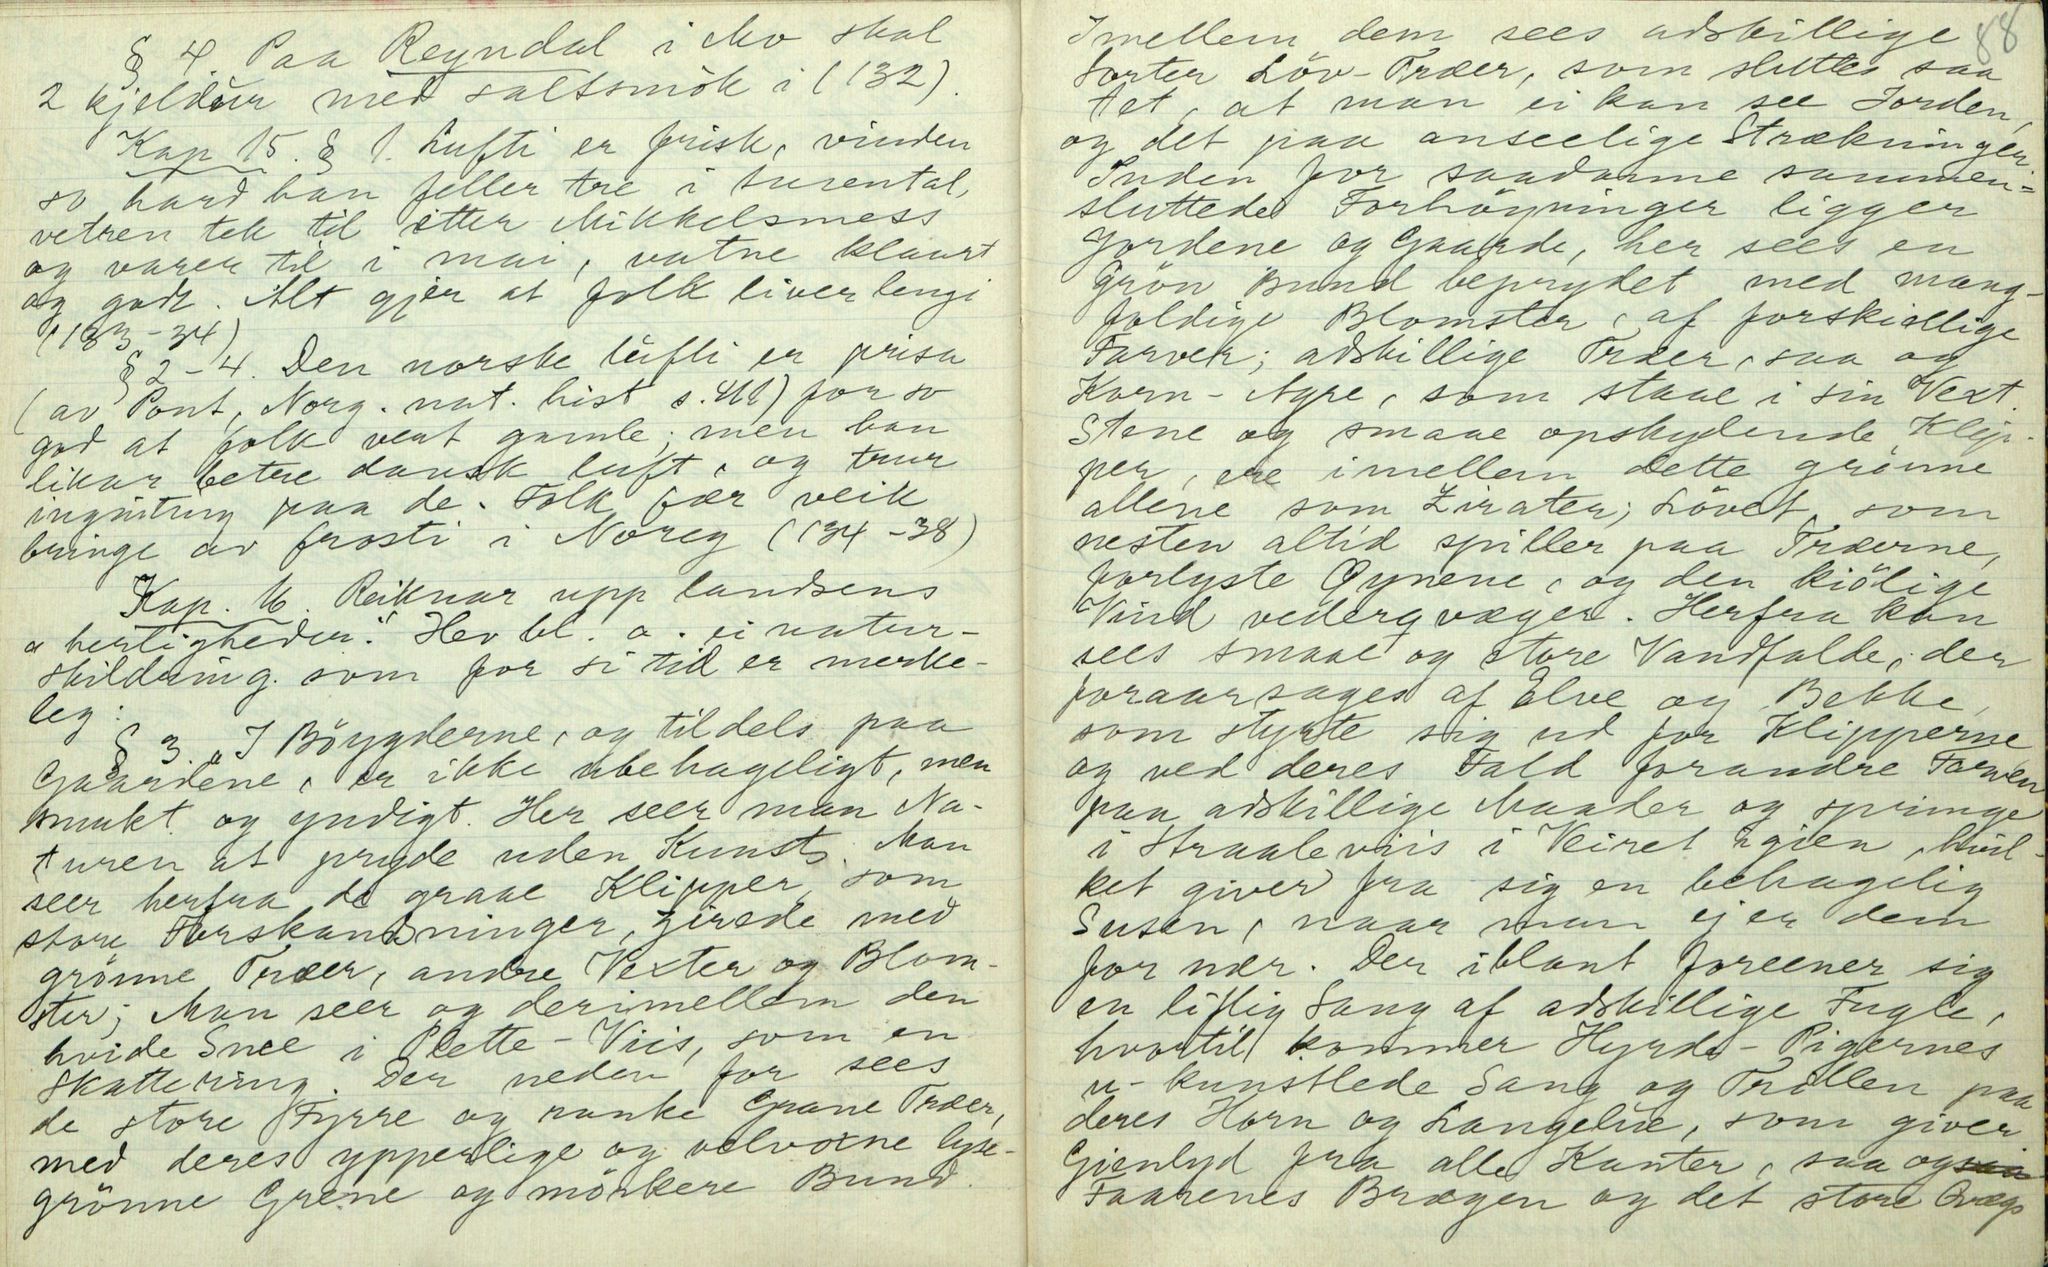 § 4. Paa Reyndal i Mo skal
2 kjeldur med saltsmök i (132).
Kap 15. § 1. Lufti er frisk, vinden
so hard han feller tre i Surental,
vetren tek til etter Mikkelsmess
og varer til i mai, vatne klaart
og godt. Alt gjer at folk liver lengi
(133-34)
§ 2-4. Den norske lufti er prisa
(av Pont, Norg. nat. hist s. 411) for so
god at folk vert gamle; men han
likar betre dansk luft, og trur
inginting paa de. Folk fær veik
bringe av frosti i Noreg (134-38)
Kap. 16. Reiknar upp landsens
"herligheder". Hev bl. a. ei natur-
skildring som for si tid er merke-
leg:
§ 3. "I Böygderne, og tildels paa
Gaardene, er ikke ubehageligt, men
smukt og yndigt. Her seer man Na-
turen at pryde uden Kunst. Man
seer herfra de graae Klipper, som
store Forskandsninger, zirede med
grönne Træer, andre Vexter og Blom-
ster; Man seer og derimellem den
hvide Snee i Plette-Viis, som en
Skattering. Der neden for sees
de store Fyrre og ranke Grane Træer,
med deres ypperlige og velvoxne lyse-
grönne Grene og mörkere Bund.
88
Imellem dem sees adskillige
Sorter Löv-Træer, som sluttes saa
tet, at man ei kan see Jorden,
og det paa anseelige Strækninger.
Inden for saadanne sammen-
sluttede Forhöyninger ligger
Jordene og Gaarde, her sees en
Grön Bund beprydet med mang-
foldige Blomster, af forskiellige
Farver; adskillige Træer, saa og
Korn-Agre, som staae i sin Vext.
Stene og smaae opskydende Klip-
per, ere imellem dette grönne
allene som Zirater; Lövet, som
nesten altid spiller paa Træerne,
forlyste Øynene, og den kiölige
Vind vederqvæger. Herfra kan
sees smaae og store Vandfalde, der
foraarsages af Elve og Bekke,
som styrte sig ud for Klipperne
og ved deres Fald forandre Farven
paa adskillige Maader og springe
i Straaleviis i Veiret igien, hvil-
ket giver fra sig en behagelig
Susen, naar man ej er dem
for nær. Der iblant foreener sig
en liflig Sang af adskillige Fugle,
hvortil kommer Hyrde-Pigernes
u-kunstlede Sang og Trallen paa
deres Horn og Langelüe, som giver
Gienlyd fra alle Kanter, saa og
Faarenes Brægen og det store Qvægs